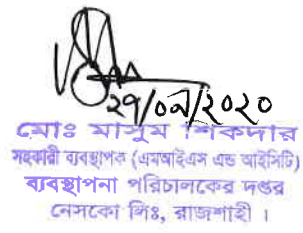 ২৭/০৯/২০২০
মোঃ মাসুম শিকদার
সহকারী ব্যবস্থাপক (এমআইএস এন্ড আইসিটি)
ব্যবস্থাপনা পরিচালকের দপ্তর
নেসকো লিঃ, রাজশাহী ।